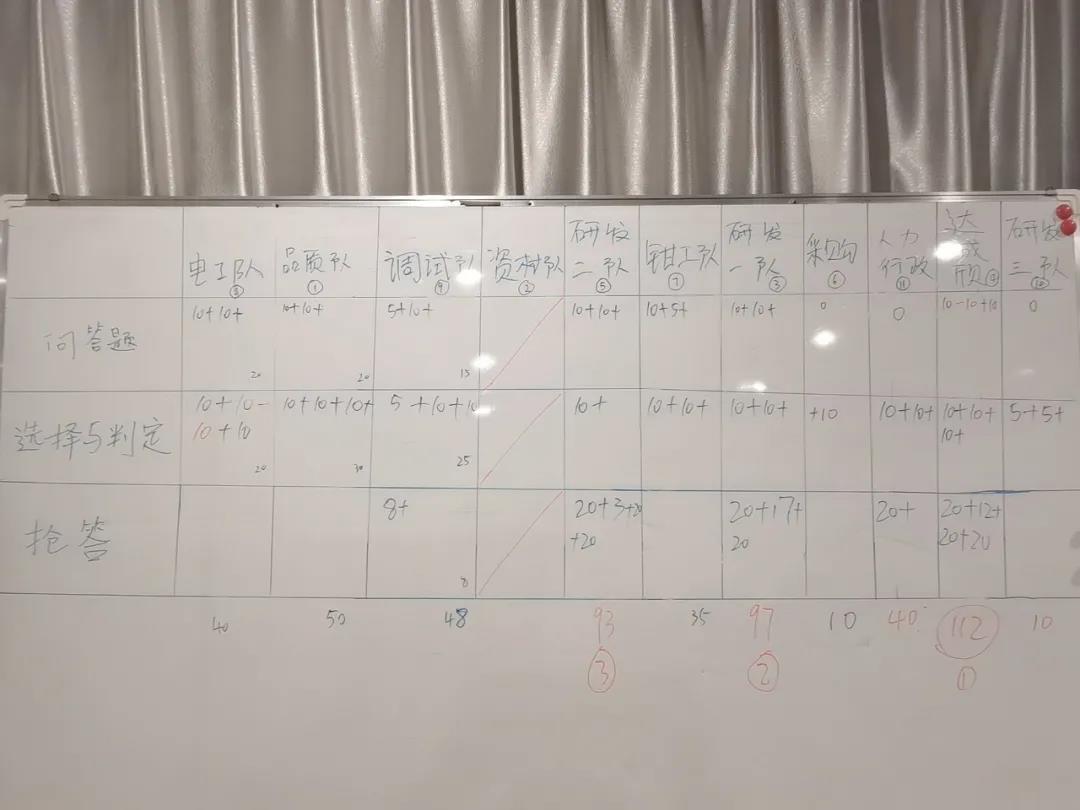 电工队 ⑧
品质队 ①
调试队 ④
资材队 ②
研发二队 ⑤
钳工队 ⑦
研发一队 ③
采购 ⑥
人力行政 ⑪
达
三队 ⑩
问答题
10+10+
20
10+10+
20
5+10+
15
10+10+
10+5+
10+10+
0
0
10-10+10
0
选择与判定
10+10-
10+10
20
10+10+10+
30
5+10+10
25
10+
10+10+
10+10+
+10
10+10+
10+10+
10+
5+5+
抢答
8+
8
20+3+20
+20
20+17+
20
20+
20+12+
20+20
40
50
48
93
35
97
10
40
112
10
③
②
①